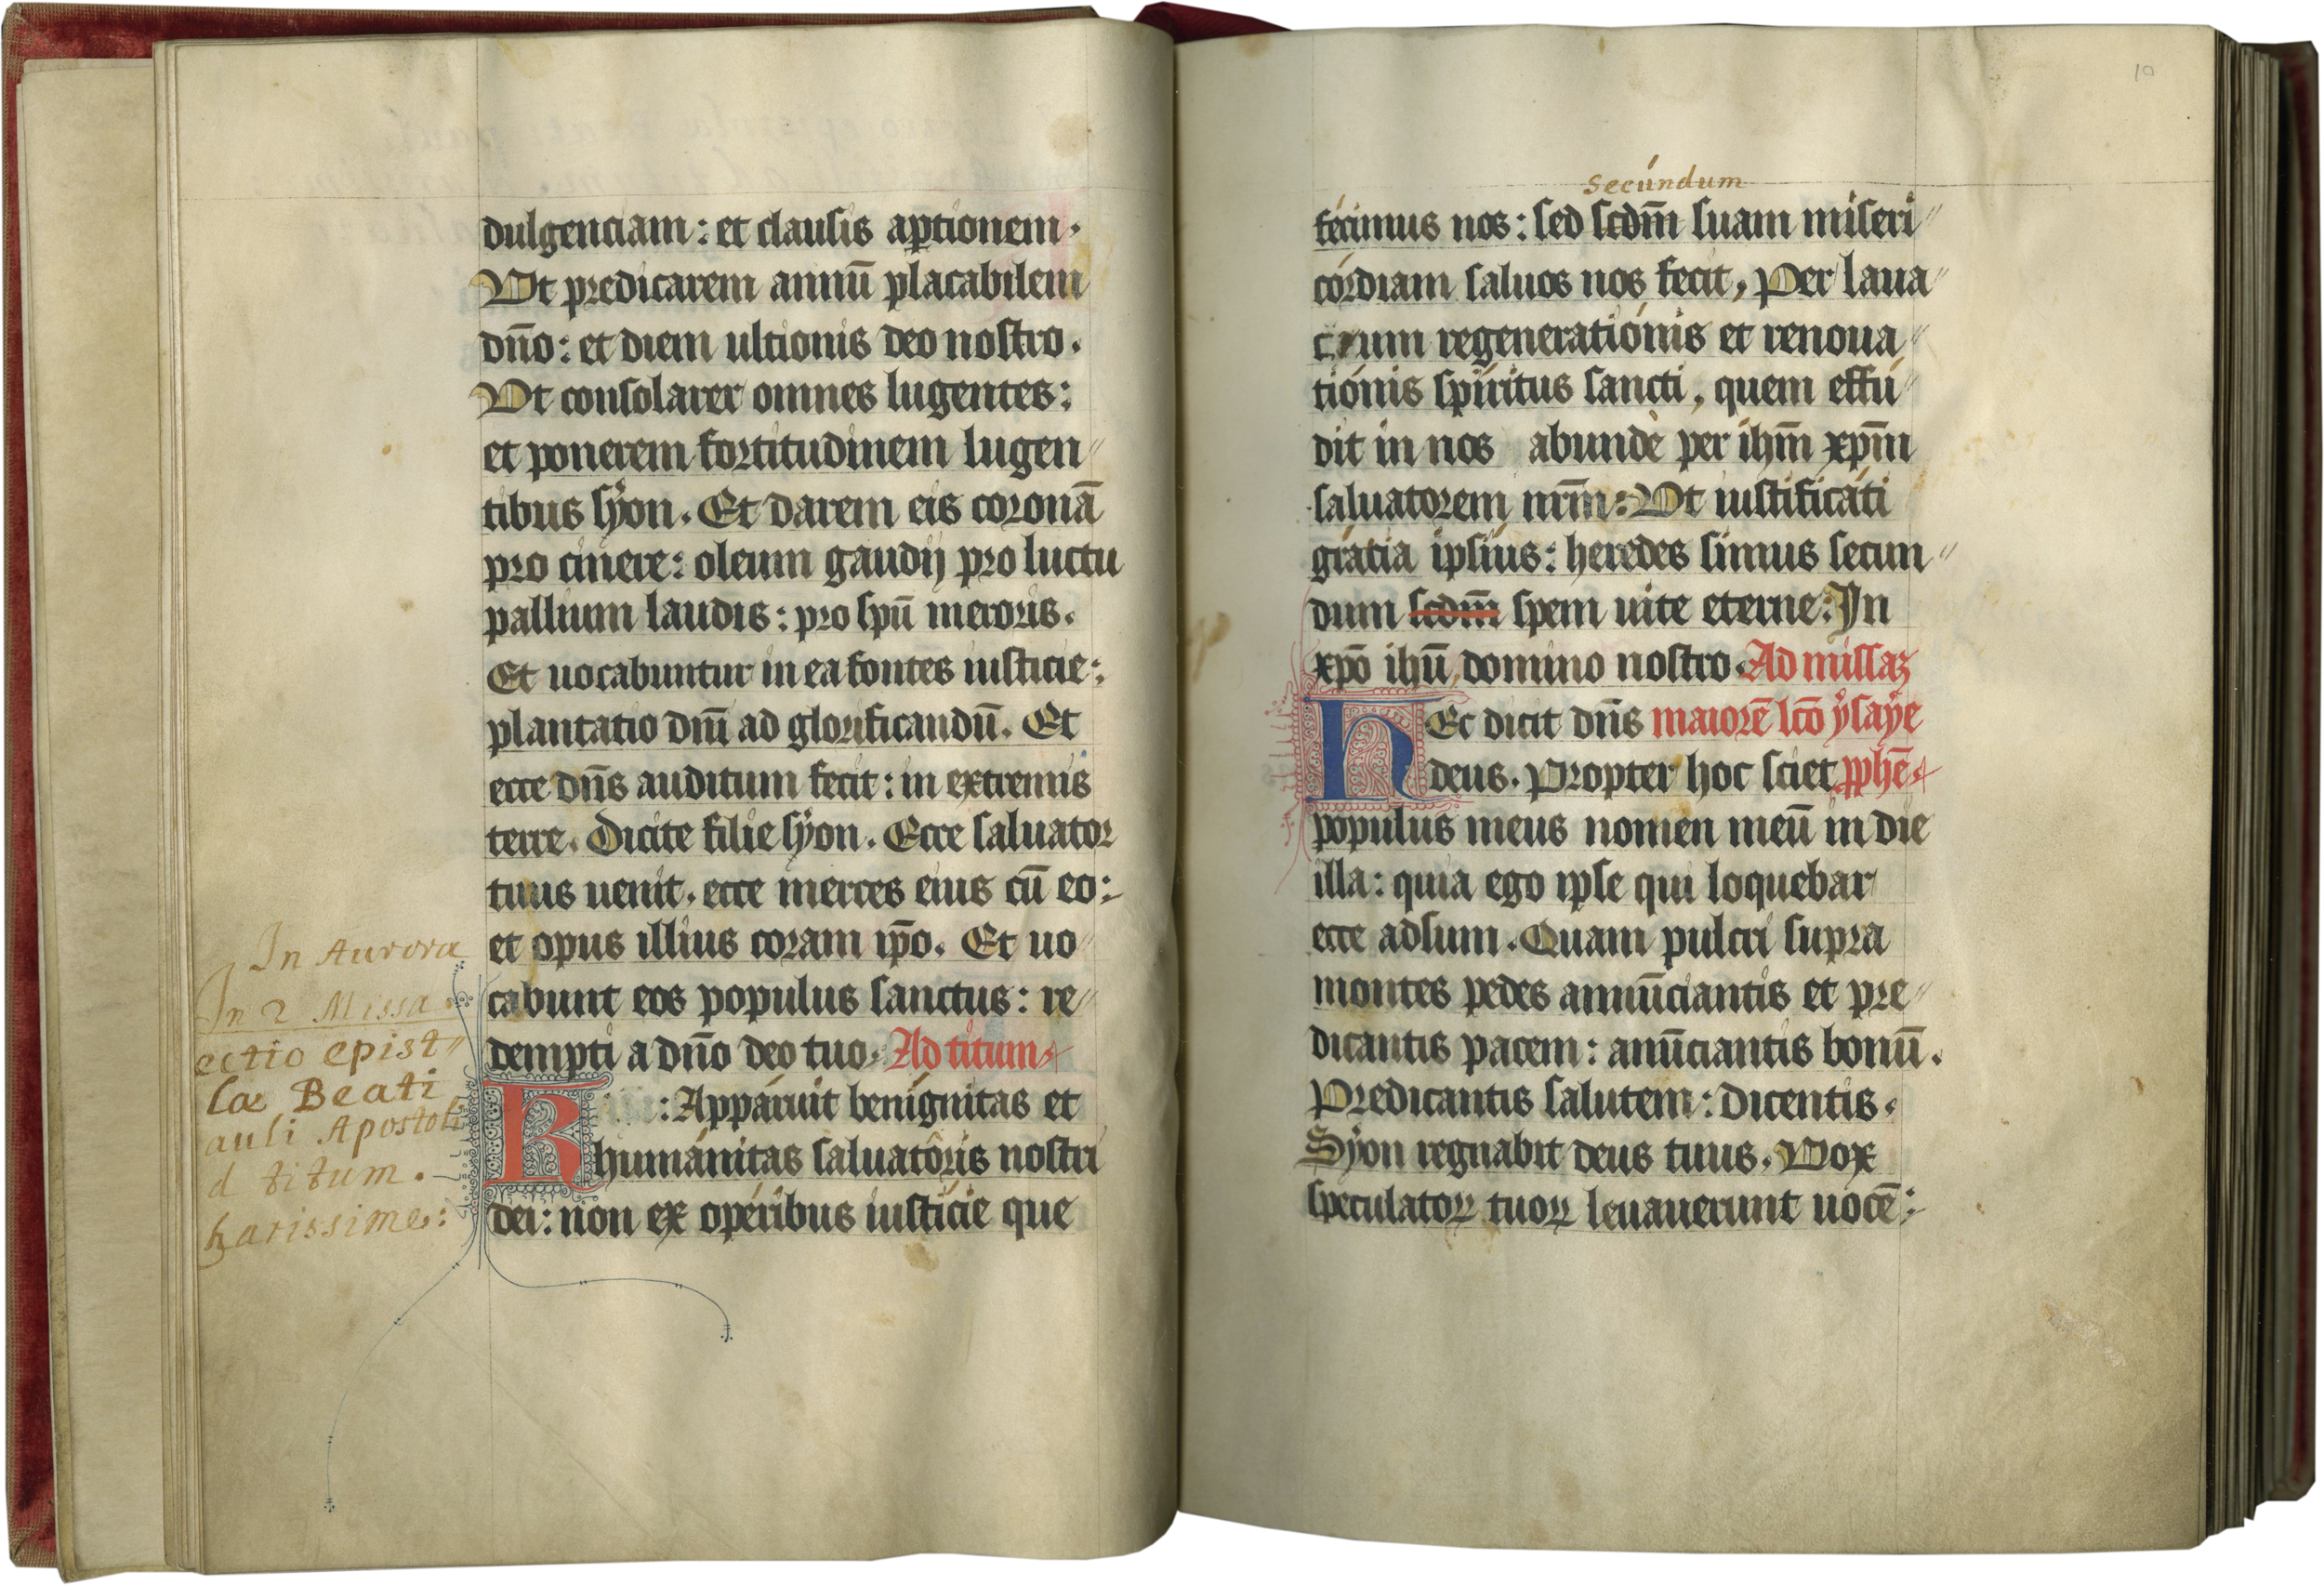 dulgenciam: et clausis aptionem.
Ut predicarem annū placabilem
dn̄o: et diem ultionis deo nostro.
Ut consolarer omnes lugentes:
et ponerem fortitudinem lugen〃
tibus sÿon. Et darem eis coronā
pro cinere: oleum gaudij pro luctu
pallium laudis: pro spū meroris.
Et uocabuntur in ea fontes iusticie:
plantatio dnī ad glorificandū. Et
ecce dn̄s auditum fecit: in extremis
terre. Dicite filie sÿon. Ecce saluator
tuus uenit. ecce merces eius cū eo:
et opus illius coram ip̄o. Et uo〃
cabunt eos populus sanctus: re〃
dempti a dn̄o deo tuo. Ad titum
K : Appáruit benígnitas et
humánitas saluatôris nostri
dei: non ex opéribus iustície que
In Aurora
In 2 Missa.
ectio epist〃
læ Beati
auli Apostoli
d titum.
harissime:
10
secúndum
fécimus nos: sed scdm̄ suam miseri〃
córdiam saluos nos fecit, Per laua〃
crum regeneratiónis et renoua〃
tiónis spíritus sancti, quem effú〃
dit in nos abundè per ihm̄ xpm̄
saluatorem nrm̄: Ut iustificáti
grátia ipsíus: heredes simus secun〃
dum scdm̄ spem uite eterne: In
xpō ihū domino nostro. Ad missaz
HEc dicit dn̄s maiorē lcō ÿsaÿe
deus. Propter hoc sciet pphē.
populus meus nomen meū in die
illa: quia ego ipse qui loquebar
ecce adsum. Quam pulcri supra
montes pedes annūciantis et pre〃
dicantis pacem: anūciantis bonū.
Predicantis salutem: dicentis.
Sÿon regnabit deus tuus. Vox
speculatoꝝ tuoꝝ leuauerunt uocē: